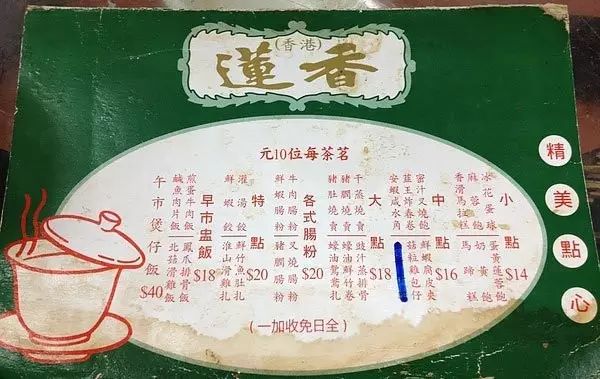 (香港)
蓮香
精美點心
茗茶每位10元
小點 $14
冰花蛋球 蛋黃蓮蓉飽
麻蓉飽 奶黃飽
香滑馬拉糕 馬蹄糕
中點 $16
蜜汁叉燒飽 鮮蝦腐皮夾
韮王炸春卷 菇粒雞包仔
安蝦咸水角
大點 $18
干蒸燒賣 豉汁蒸排骨
豬膶燒賣 蠔油鮮竹卷
豬肚燒賣 蠔油鴛鴦扎
各式腸粉 $20
牛肉腸粉 叉燒腸粉
鮮蝦腸粉 豬膶腸粉
特點 $20
灌湯餃 鮮竹魚肚扎
鮮蝦餃 淮山滑雞扎
早市盅飯 $18
煎蛋牛肉飯 鳳爪排骨飯
鹹魚肉片飯 北菇滑雞飯
午市煲仔飯 $40
(全日免收加一)